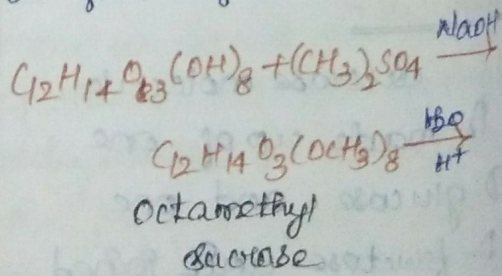 C12H14O3(OH)8 + (CH3)2SO4 NaOH →
C12H14O3(OCH3)8 H2O H+ →
Octamethyl
sucrose